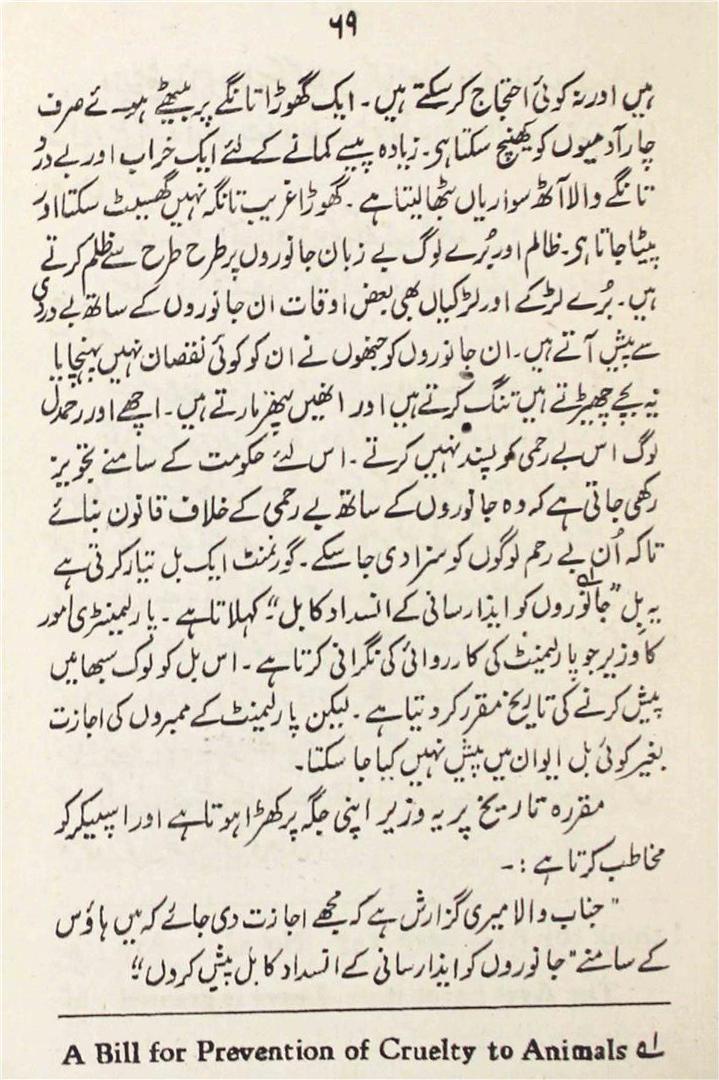 ۶۹
ہیں اور نہ کوئی احتجاج کر سکتے ہیں۔ ایک گھوڑا تانگے پر بیٹھے ہوئے صرف
چار آدمیوں کو کھینچ سکتا ہی۔ زیادہ پیسے کمانے کے لئے ایک خراب اور بے درد
تانگے والا آٹھ سواریاں بٹھا لیتا ہے۔ گھوڑا غریب تانگہ نہیں گھسیٹ سکتا اور
پیٹا جاتا ہی۔ ظالم اور بُرے لوگ بے زبان جانوروں پر طرح طرح سے ظلم کرتے
ہیں۔ بُرے لڑکے اور لڑکیاں بھی بعض اوقات ان جانوروں کے ساتھ بے دردی
سے پیش آتے ہیں۔ ان جانوروں کو جنھوں نے ان کو کوئی نقصان نہیں پہنچایا
یہ بچے چھیڑتے ہیں تنگ کرتے ہیں اور انھیں پتھر مارتے ہیں۔ اچھے اور رحمدل
لوگ اس بے رحمی کو پسند نہیں کرتے۔ اس لئے حکومت کے سامنے تجویز
رکھی جاتی ہے کہ وہ جانوروں کے ساتھ بے رحمی کے خلاف قانون بنائے
تاکہ اُن بے رحم لوگوں کو سزا دی جا سکے۔ گورنمنٹ ایک بل تیار کرتی ہے
یہ بِل "جانوروں کو ایذا رسانی کے انسداد کا بل"؂۱ کہلاتا ہے۔ پارلیمنٹری امور
کا وزیر جو پارلیمنٹ کی کارروائی کی نگرانی کرتا ہے۔ اس بل کو لوک سبھا میں
پیش کرنے کی تاریخ مقرر کر دیتا ہے۔ لیکن پارلیمنٹ کے ممبروں کی اجازت
بغیر کوئی بل ایوان میں پیش نہیں کیا جا سکتا۔
مقررہ تاریخ پر یہ وزیر اپنی جگہ پر کھڑا ہوتا ہے اور اسپیکر کو
مخاطب کرتا ہے :۔
"جناب والا میری گزارش ہے کہ مجھے اجازت دی جائے کہ میں ہاؤس
کے سامنے "جانوروں کو ایذا رسانی کے انسداد کا بل پیش کروں"
؂۱ A Bill for Prevention of Cruelty to Animals